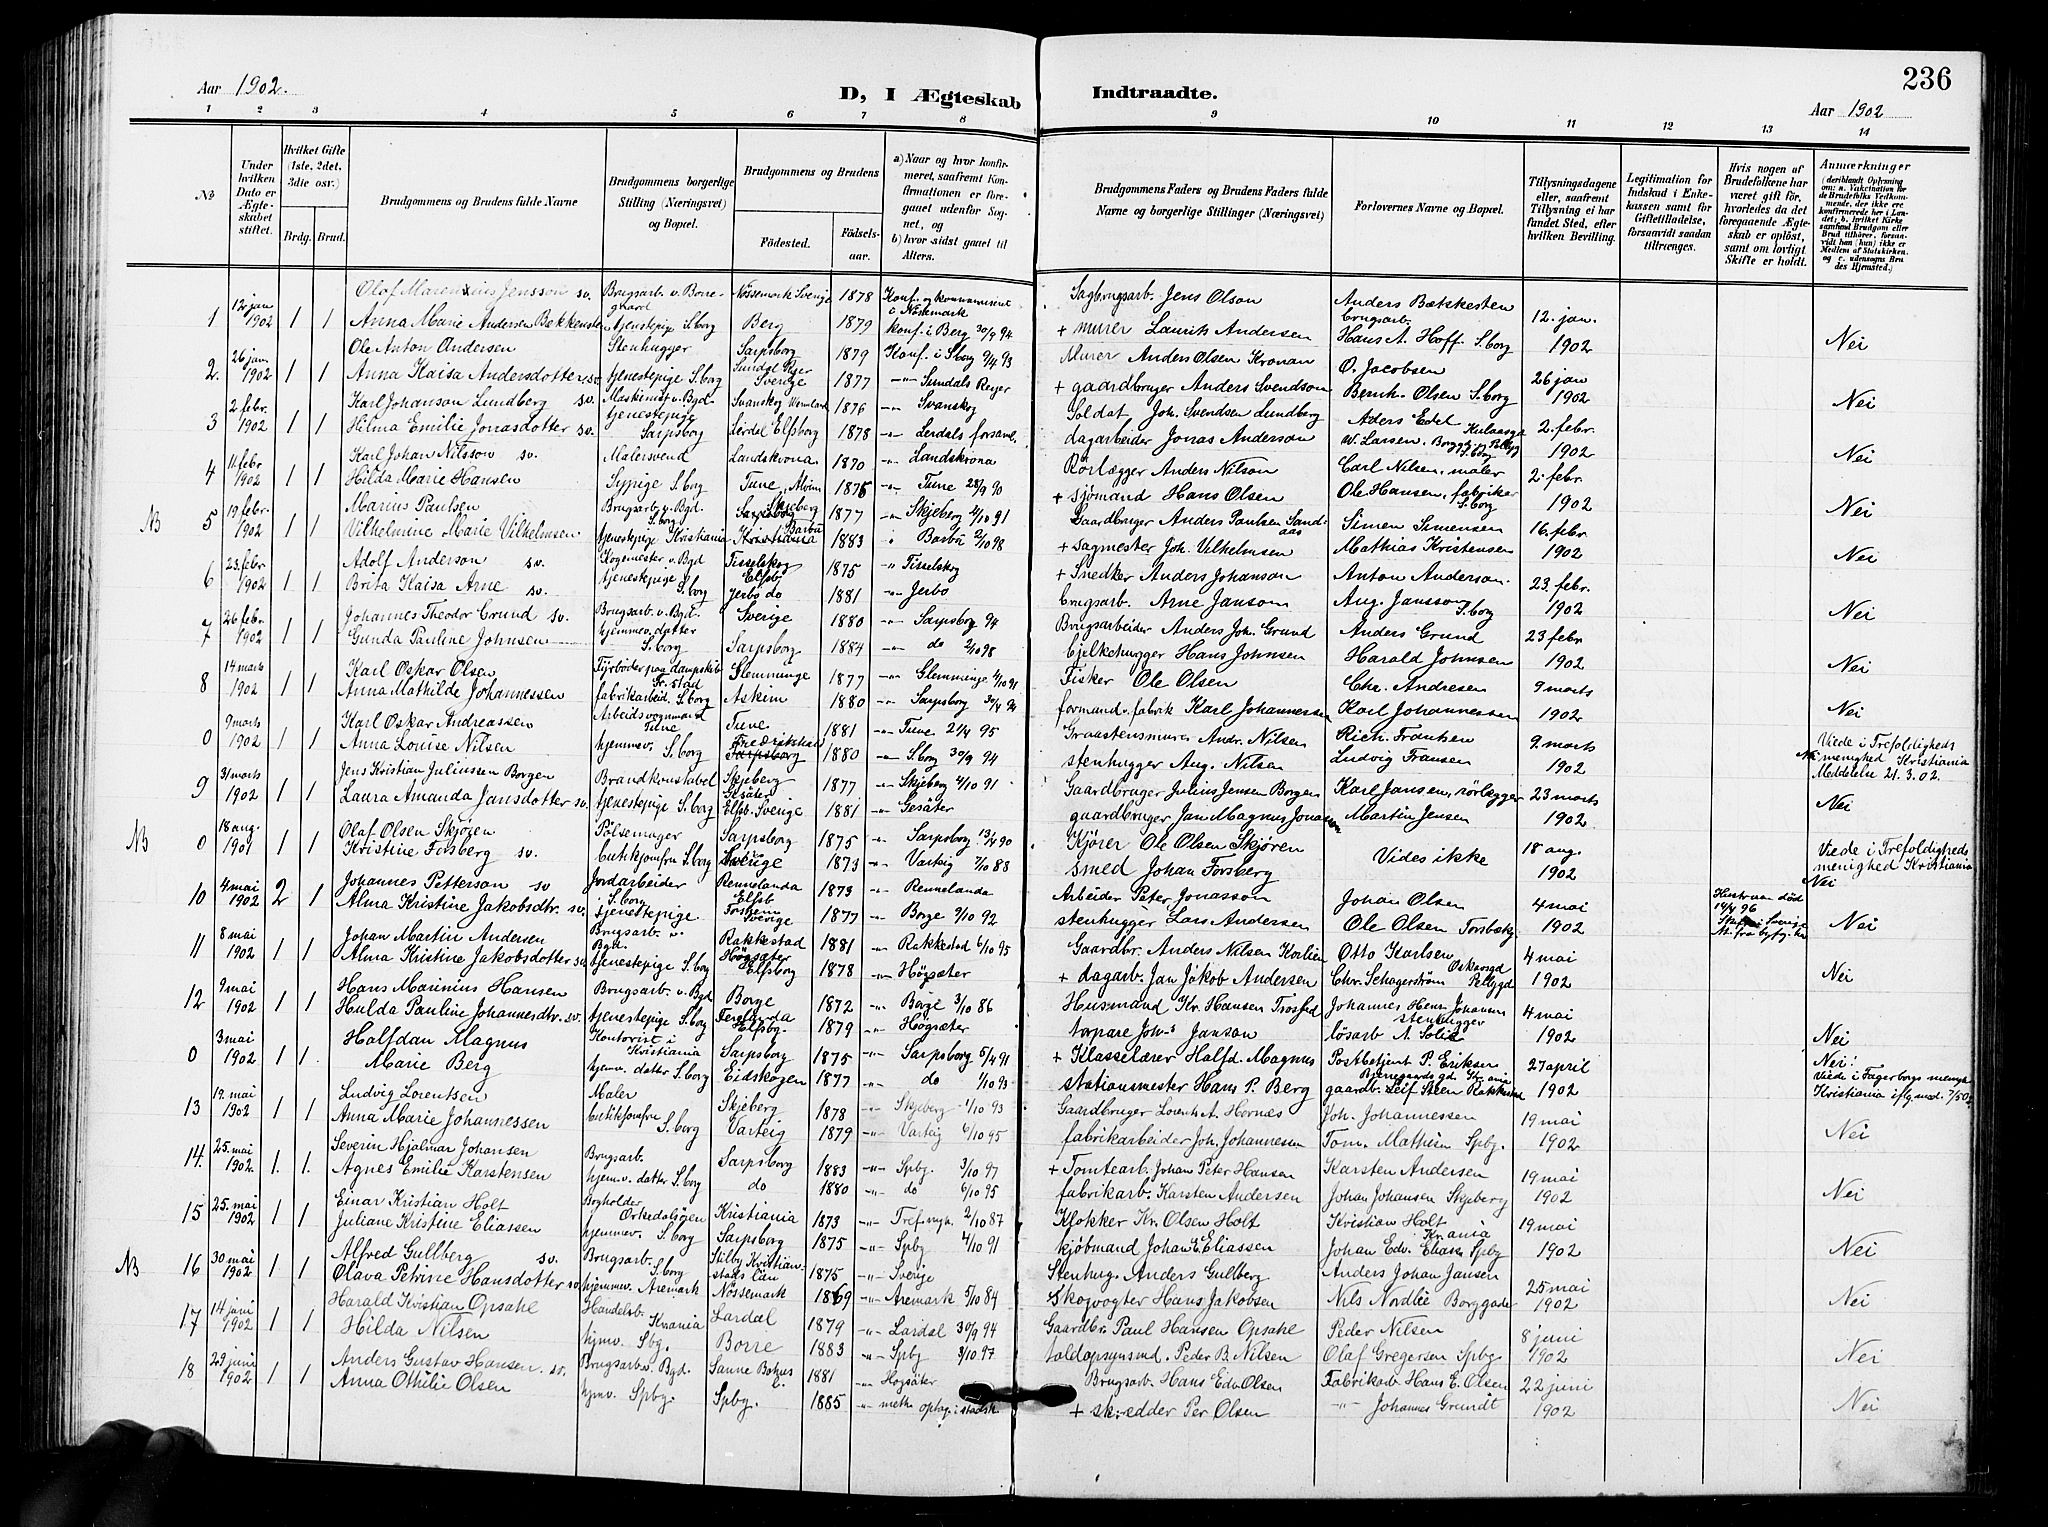 236
Aar 1902.
D, I Ægteskab
Indtraadte.
Aar 1902
1 2 3 4 5 6 7 8 9 10 11 12 13 14
No
Under hvilken Dato er Ægteskabet stiftet.
Hvilket Gifte (1ste, 2det, 3die osv.)
Brdg. Brud.
Brudgommens og Brudens fulde Navne
Brudgommens borgerlige Stilling (Næringsvei) og Bopæl.
Brudgommens og Brudens
Fødested.
Fødselsaar.
a) Naar og hvor konfirmeret, saafremt Konfirmationen er foregaaet udenfor Sognet, og
b) hvor sidst gaaet til Alters.
Brudgommens Faders og Brudens Faders fulde Navne og borgerlige Stillinger (Næringsvei)
Forlovernes Navne og Bopæl.
Tillysningsdagene eller, saafremt Tillysning ei har fundet Sted, efter hvilken Bevilling.
Legitimation for Indskud i Enkekassen samt for Giftetilladelse, forsaavidt saadan tiltrænges.
Hvis nogen af Brudefolkene har været gift før, hvorledes da det foregaaende Ægteskab er opløst, samt om lovligt Skifte er holdt.
Anmærkninger
Olaf Marenius Jensson sv. Brugsarb. v. Borregaard Nössemark Sverige 1878 Konf. og kommuniceret i Nösemark Sagbrugsarb. Jens Olson Anders Bækkesten brugsarb.
1 12 jan 1902 1 1 Anna Marie Andersen Bekkensten tjenestepige S.borg Berg 1879 konf. i Berg 30/9 94 + murer Laurits Andersen Hans A. Hoff S.borg 12. jan. 1902 Nei
Ole Anton Andersen Stenhugger Sarpsborg 1879 Konf. i Sborg 9/4 93 Murer Anders Olsen Kronan O. Jacobsen
2. 26 jan 1902 1 1 Anna Kaisa Andersdotter sv. tjenestepige S.borg Sundal Ryer Sverige 1877 " Sundals Reyer + gaardbruger Anders Svendson Bernh. Olsen S.borg 26 jan 1902 Nei
Karl Johanson Lundberg sv. Maskinist v. Bgd. Svanskog Wermland 1876 " Svanskog Soldat Joh. Svendsen Lundberg
3 2 febr. 1902 1 1 Hilma Emilie Jonasdotter sv. tjenestepige Sarpsborg Lerdal Elfsborg 1878 " Lerdals forsaml. dagarbeider Jonas Anderson W. Larsen 2. febr. 1902 Nei
Karl Johan Nilsson sv. Malersvend Landskrona 1870 " Landskrona Rörlægger Anders Nilson Carl Nilsen, maler
4 11. febr 1902 1 1 Hilda Marie Hansen Sypige S.borg Tune 1875 " Tune 28/9 90 + sjömand Hans Olsen Ole Hansen, fabriker S.borg 2. febr. 1902 Nei
Marius Paulsen Brugsarb. v. Bgd. S.borg Skjeberg 1877 " Skjeberg 4/10 91 Gaardbruger Anders Paulsen Sandaas Simen Simensen
NB 5 19 febr. 1902 1 1 Vilhelmine Marie Vilhelmsen tjenestepige Kristiania Barbu 1883 " Barbu 2/10 98 + sagmester Joh. Vilhelmsen Mathias Kristensen 16. febr 1902 Nei
Adolf Anderson sv. Kogemester v. Bgd Tisselskog Elfsb. 1875 " Tisselskog + Snedker Anders Johanson Anton Anderson
6 23. febr 1902 1 1 Brita Kaisa Arne sv. tjenestepige S.borg Jerbo do 1881 " Jerbo brugsarb. Arne Janson Aug. Jansson S.borg 23. febr. 1902 Nei
Johannes Theodor Grund sv. Brugsarb. v. Bgd. Sverige 1880 " Sarpsborg 94 Brugsarbeider Anders Joh. Grund Anders Grund
7 26 febr. 1902 1 1 Gunda Pauline Johnsen hjemmev. datter S.borg Sarpsborg 1884 " do 2/10 98 bjelkehugger Hans Johnsen Harald Johnsen 23 febr 1902 Nei
Karl Oskar Olsen Fyrböder paa dampskib Fr.stad Glemminge 1877 " Glemminge 4/10 91 Fisker Ole Olsen Chr. Andresen
8 14 marts 1902 1 1 Anna Mathilde Johannessen fabrikarbeid. S.borg Askim 1880 " Sarpsborg formand v. fabrik Karl Johannessen Karl Johannessen 9 marts 1902 Nei
Karl Oskar Andreassen Arbeidsvognmand Tune Tune 1881 " Tune 21/4 95 Graastensmurer Andr. Nilsen Rich. Frantzen
0 9 marts 1902 1 1 Anna Louise Nilsen hjemmev. S.borg Fredrikstad 1880 " S.borg 30/9 94 stenhugger Aug. Nilsen Ludvig Fransen 9. marts 1902 Viede i Trefoldigheds menighed Kristiania Meddelse 21.3.02. Nei
Jens Kristian Juliussen Borgen Brandkonstabel Skjeberg 1877 " Skjeberg 4/10 91 Gaardbruger Julius Jensen Borgen Karl Jansen, rörlægger
9 31 marts 1902 1 1 Laura Amanda Jansdotter sv. tjenestepige S.borg Gesäter Elfsb. Sverige 1881 " Gesäter gaardbruger Jan Magnus Jonasson Martin Jensen 23 marts 1902 Nei
Olaf Olsen Skjören Pölsemager Sarpsborg 1875 " Sarpsborg 13/4 90 Kjörer Ole Olsen Skjören
NB 0 18 aug. 1901 1 1 Kristine Forsberg sv. butikjomfru S.borg Sverige 1873 " Varteig 7/10 88 smed Johan Forsberg Vides ikke 18 aug. 1902 Viede i Trefoldigheds menighed Kristiania Nei
Johannes Petterson sv Jordarbeider S.borg Rennelanda Elfsb 1873 " Rennelanda Arbeider Peter Jonasson Johan Olsen
10 4 mai 1902 2 1 Alma Kristine Jakobsdtr. sv. tjenestepige Sverige 1877 " Borge 9/10 92 stenhugger Lars Andersen Ole Olsen Forsberg 4 mai 1902 Hustruen död 14/4 96 Nei
Johan Martin Andersen Brugsarb. v. Bgd. Rakkestad 1881 " Rakkestad 6/10 95 Gaardbr. Anders Nilsen Korlien Otto Karlsen
11 8 mai 1902 1 1 Alma Kristine Jakobsdotter sv. tjenestepige S.borg Högsäter Elfsborg 1878 " Högsäter + dagarb. Jan Jakob Andersen Chr. Schagerström 4 mai 1902 Nei
Hans Marinius Hansen Brugsarb. v. Bgd Borge 1872 " Borge 3/10 86 Husmand Kr. Hansen Johannes Henr. Johansen stenhugger
12 9 mai 1902 1 1 Hulda Pauline Johannesdtr. sv. tjenestepige S.borg Ferelanda Elfsbg. 1879 " Högsæter torpare Johs Janson lösarb A. Solie 4 mai 1902 Nei
Halfdan Magnus Kontorist i Kristiania Sarpsborg 1875 " Sarpsborg 5/4 91 + Klasselærer Halfd. Magnus Postbetjent P. Eriksen
0 3 mai 1902 1 1 Marie Berg hjemv. datter S.borg Eidskogen 1877 " do 1/10 93 stationsmester Hans P. Berg gaardb. Leif Steen Rakkestad 27 april 1902 Nei! Viede i Fagerborgs menigh Kristiania iflg. med.
Ludvig Lorentsen Maler Skjeberg 1878 " Skjeberg 1/10 93 Gaardbruger Lorents A. Hornæs Joh. Johannessen
13 19. mai 1902 1 1 Anna Marie Johannessen butikjomfru S.borg Varteig 1879 " Varteig 6/10 95 fabrikarbeider Joh. Johannesen Tom. Mathisn Spbg. 19 mai 1902 Nei
Severin Hjalmar Johansen Brugsarb. Sarpsborg 1883 " Spbg. 3/10 97 + Tomtearb. Johan Peter Hansen Karsten Andersen
14. 25. mai 1902. 1. 1. Agnes Emilie Karstensen hjemv. datter S.borg do 1880 " do 6/10 95 fabrikarb. Karsten Andersen Johan Johansen Skjeberg 19 mai 1902 Nei
Einar Kristian Holt Bogholder Orkedalsören Kristiania 1873 " Tref. mgh. 2/10 87 Klokker Kr. Olsen Holt Kristian Holt Krania
15 25. mai 1902 1 1 Juliane Kristine Eliassen hjemmev. S.borg Sarpsborg 1875 " Spbg 4/10 91 kjöbmand Johan E. Eliassen Johan Edv. Eliasen Spbg 19 mai 1902 Nei
Alfred Gullberg sv. Brugsarb. S.borg Stilby Kristianstads län 1875 " Sverige Stenhug. Anders Gullberg Anders Johan Jansen
NB 16 30 mai 1902 1 1 Olava Petrine Hansdotter sv. hjemmev. Aremark Nössemark 1869 " Aremark 5/10 84 Skogvogter Hans Jakobsen Nils Nordlie Borggaden 25 mai 1902 Nei
Harald Kristian Opsahl Handelsb. Krania Lardal 1879 " Lardal 30/9 94 Gaardbr. Paul Hansen Opsahl Peder Nilsen
17 14 juni 1902 1 1 Hilda Nilsen hjmv. Sbg. Borre 1883 " Spbg 3/10 97 toldopsynsmd. Peder B. Nilsen Olaf Gregersen Spbg 8 juni 1902 Nei
Anders Gustav Hansen sv. Brugsarb. v. Bgd. Sanne Bohus l. 1881 " Hogsäter Brugsarb. Hans Edv. Olsen Fabrikarb Hans E. Olsen
18 29 juni 1902 1 1 Anna Othilie Olsen hjmv. Spbg. Spbg. 1885 " + skredder Per Olsen " Johannes Grundt 22 juni 1902 Nei